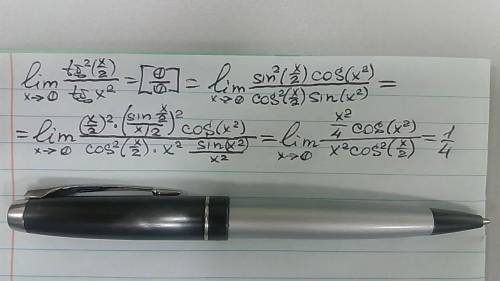 lim x→0 tg²(x/2) / tg x² = [0/0] = lim x→0 sin²(x/2) cos(x²) / cos²(x/2) sin(x²) =
= lim x→0 (x/2)² · (sin x/2 / x/2)² cos(x²) / cos²(x/2) · x² sin(x²)/x² = lim x→0 x²/4 cos(x²) / x² cos²(x/2) = 1/4